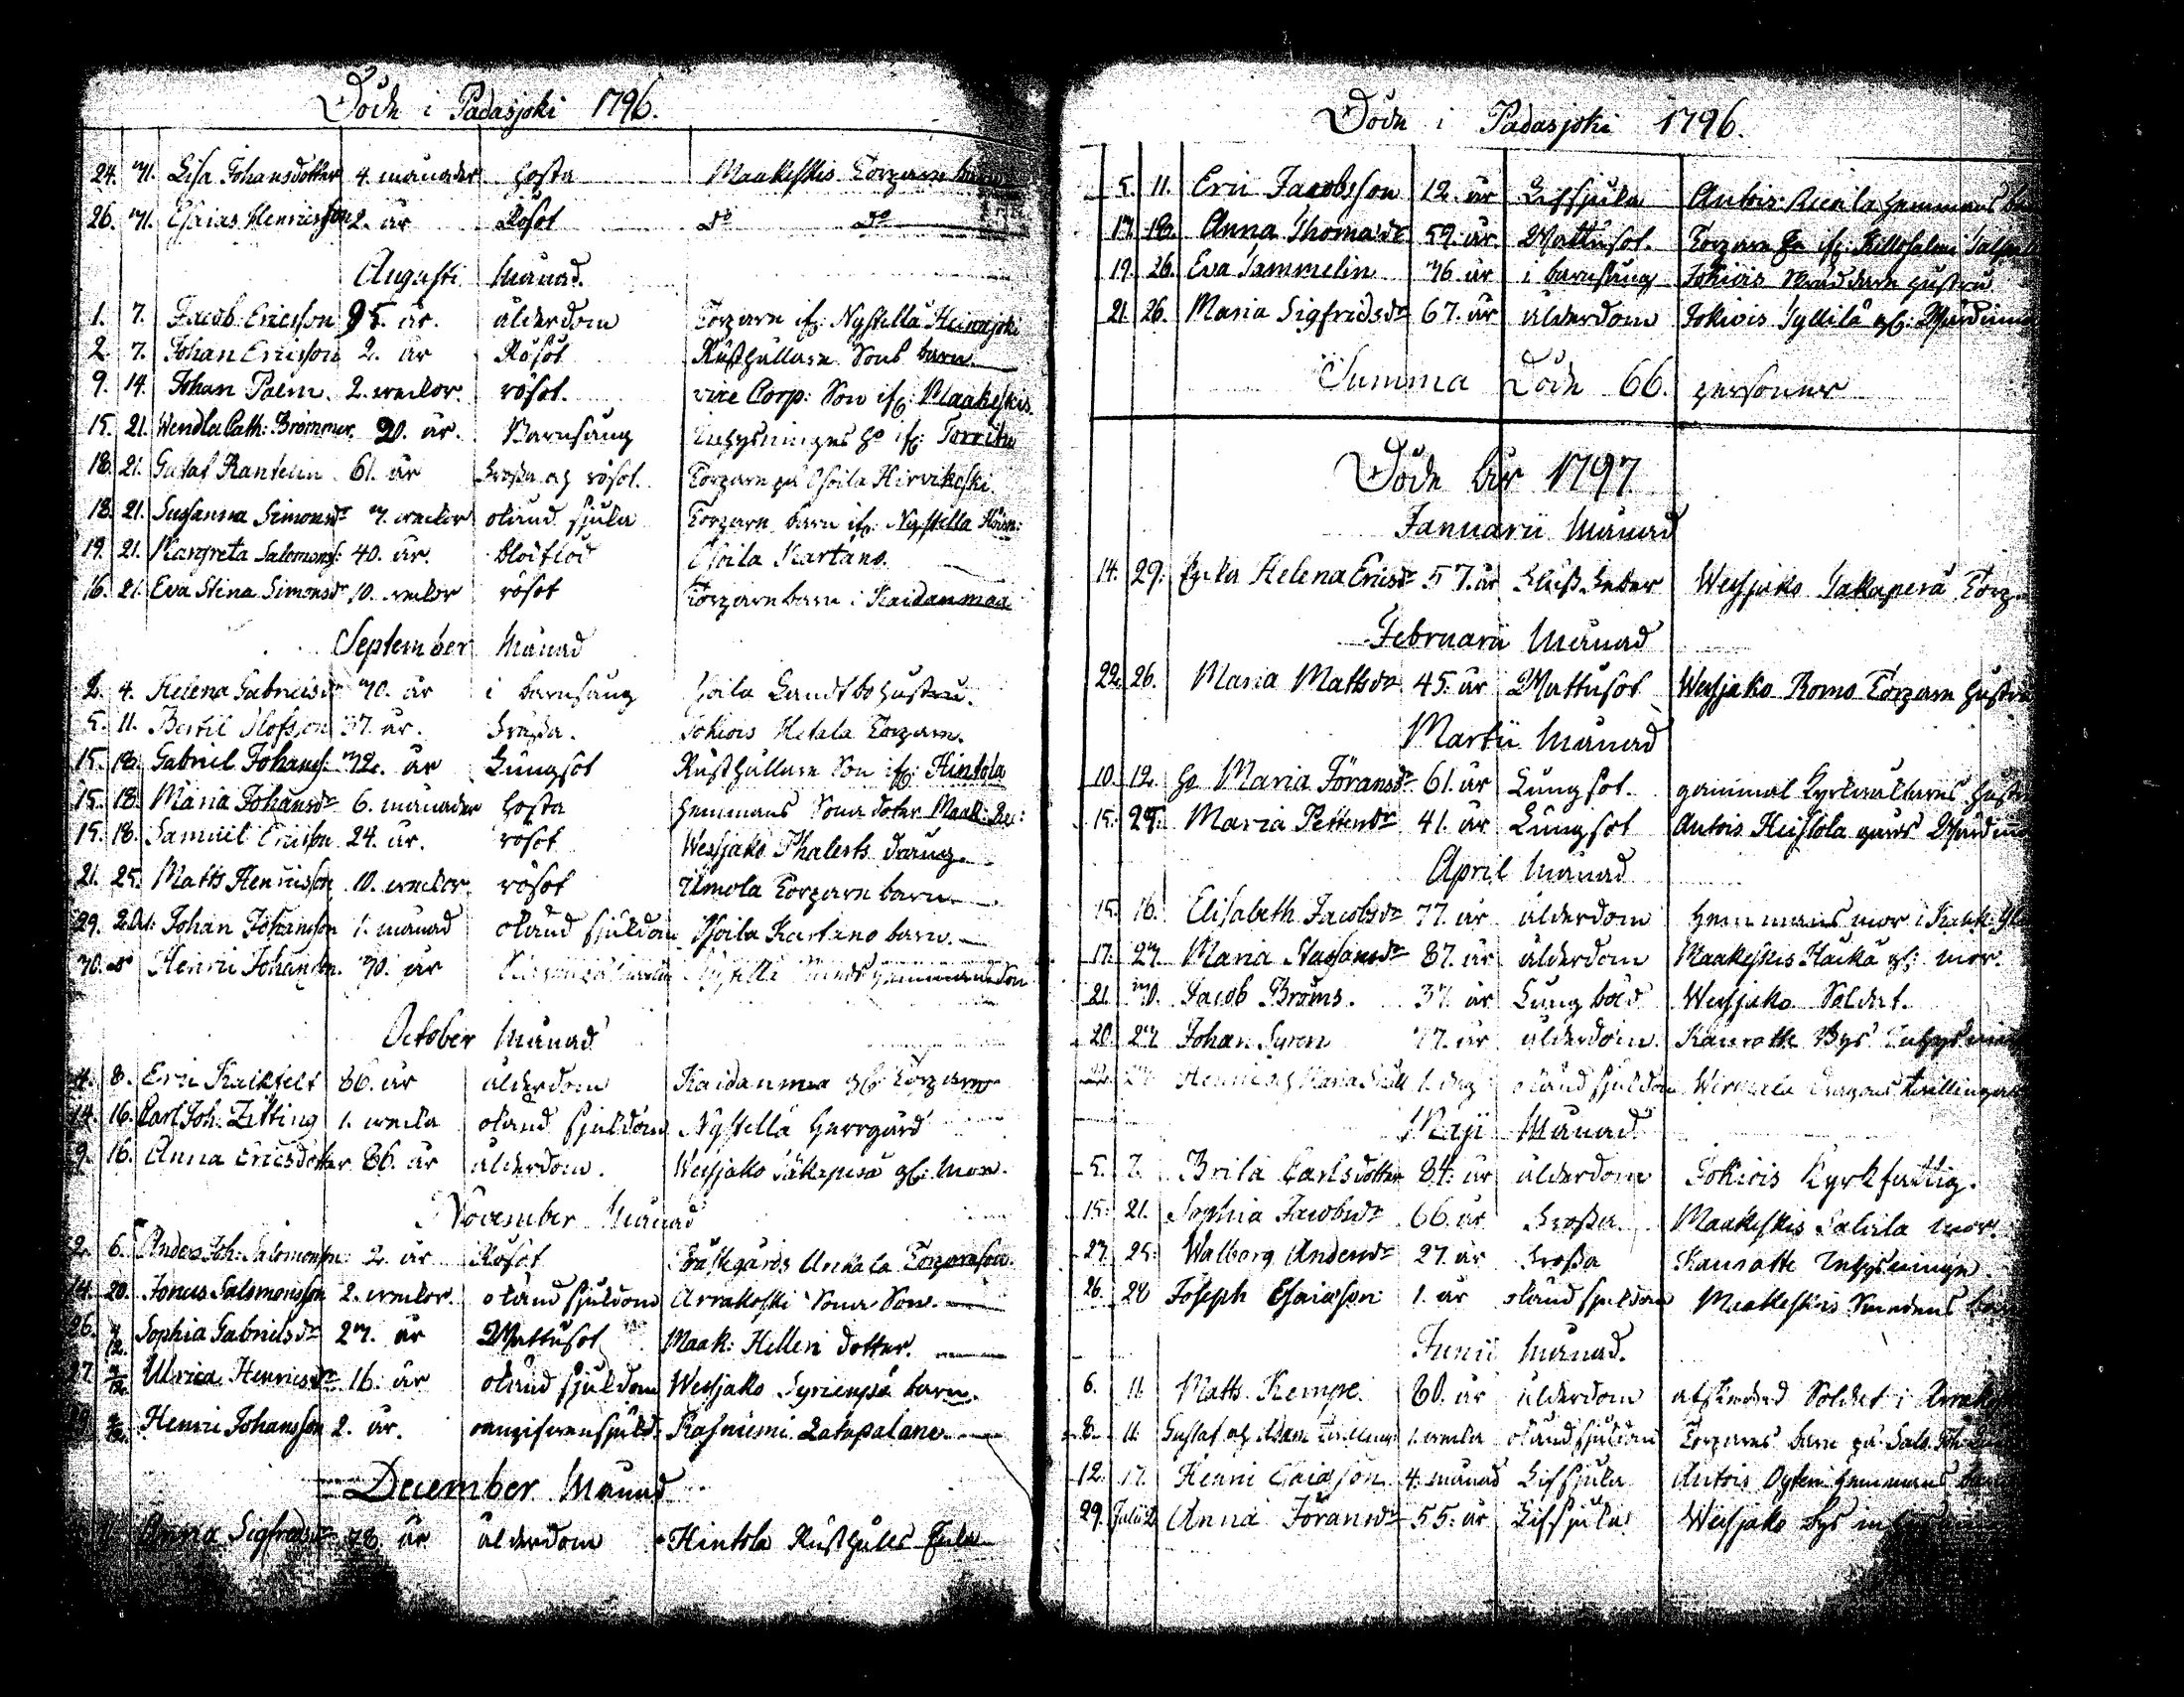 Döde i Padasjoki 1796.
24. 31. Lisa Johansdotter 4. månader hosta Maakeskis Torpare barn
26. 31. Esaias Henricsson 2. år Rösot do do
Augusti Månad.
1. 7. Jacob Ericsson 95. år. ålderdom Torpare ifr: Nystellä Heinajoki
2. 7. Johan Ericsson 2. år Rösot Rusthållare Sons barn
9. 14. Johan Palm. 2. weckor. rösot. vice Corp: Son ifr: Maakeskis.
15. 21. Wendla Cath: Brommer. 30. år. Barnsäng Inhysninges ho ifr: Torrittu
18. 21. Gustaf Rantelin 61. år Brossa och rösot. Torpare på Osoila Hirvikoski.
18. 21. Susanna Simonsdr 3. weckor okänd sjuka Torpare barn ifr: Nystella Hein:
19. 21. Margreta Salomons: 40. år. blodflod Osoila Kartano.
16. 21. Eva Stina Simonsdr 10. weckor rösot Torpare barn i Kaidanmaa
September Månad
2. 4. Helena Gabrielsdr 30. år i barnsäng Osoila Landtbo hustru.
5. 11. Bertil Olofsson 37. år. Jokiois Hetala Torpare.
15. 18. Gabriel Johans: 32. år Lungsot Rusthållare Son ifr: Hintola
15. 18. Maria Johansdr 6. månader hosta Hemmans Sona dotter Maak:
15. 18. Samuel Ericsson 24. år. rösot Wesijako Phalerts dräng.
21. 25. Matts Henricsson 10. weckor. rösot Torpare barn
29. Johan Johansson 1. månad okänd sjukdom Osoila Kartano barn.
30. do Henric Johansson. 30. år Nystellä hemmans Son
October Månad
4. 8. Eric Kalkfelt 86. år ålderdom Kaidanmaa gl: Torpare
14. 16. Carl Joh: Zitting 1. wecka okänd sjukdom Nystellä Herrgård
9. 16. Anna Ericsdotter 86. år ålderdom. Wesijako Takaperä gl: Mor.
November Månad
2. 6. Anders Joh: Salomonsson 2. år Rösot Prästegårds Ankala Torpareson.
14. 20. Jonas Salomonsson 2. weckor. okänd sjukdom Arrakoski Sona Son.
26. 4/12. Sophia Gabrielsdr 23. år Wattusot Maak: Helleri dotter.
27 4/12. Ulrica Henricsdr 16. år okänd sjukdom Wesijako Syrienpä barn.
Henric Johansson 2. år. Rasniemi
December Månad
11. Anna Sigfredsdr 78. år ålderdom Hintola Rusthålls Enka
Döde i Padasjoki 1796.
5. 11. Eric Jacobsson 12. år Lifsjuka Autois Hemmans
17. 18. Anna Thomasdr 59. år. Wattusot. Torpare
19. 26. Eva Tammelin 36. år i barnsäng Jokiois Skräddare hustru
21. 26. Maria Sigfridsdr 67. år ålderdom Jokiois Syllilä gl: Wärdinna
Summa Döde 66. personer
Döde År 1797
Januarii Månad
14. 29. Enka Helena Ericsdr 57. år Wesijako Takaperä Torp.
Februarii Månad
22. 26. Maria Mattsdr 45. år Wattusot Wesijako Romo Torpare hustru
Martii Månad
10. 12. ho Maria Göransdr 61. år Lungsot. gammal Kyrkovaktares hustru
15. 25. Maria Pettersdr 41. år Lungsot Autois Heistola gårds Wärdinna
April Månad
15. 16. Elisabeth Jacobsdr 77. år ålderdom hemmans mor i
17. 23. Maria Staffansdr 87. år ålderdom Maakeskis Häckä gl: mor.
21. 30. Jacob Broms. 37. år Lung Wesijako Soldat.
20. 23 Johan Syren 77. år ålderdom. Kaurotte Bys Inhysning
1. dag okänd sjukdom Wirmala Dragons twillingar
Maji Månad.
5. 7. Brita Carlsdotter 84. år ålderdom Jokiois Kyrkfattig.
15. 21. Sophia Jacobsdr 66. år Brossa Maakeskis Sakila mor.
23. 25. Walborg Andersdr 27. år Brossa Kaurotte Inhysninge
26. 28 Joseph Esaiasson 1. år okänd sjukdom Maakeskis Smedens barn
Junii Månad.
6. 11. Matts Kempe. 80. år ålderdom afskedad Soldat i
8. 11. Gustaf och Adam Twillingar 1. wecka okänd sjukdom Torpares barn på
12. 17. Henric Esaiasson 4. månad Lifsjuka Autois Oyteri hemmans barn
29. Julii 2. Anna Göransdr 55. år Lifsjuka Wesijako bys